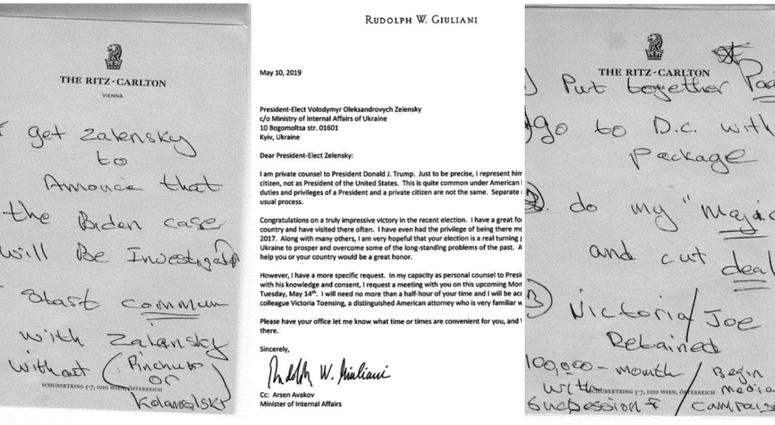 THE RITZ-CARLTON
VIENNA
get Zalensky
to
Annouce that
the Biden case
will Be Investigated
Start commun
with Zalansky
without (Pinchuk
or
SCHUBERTRING 5-7, 1010 WIEN, ÖSTERREICH
Kolamoisky
RUDOLPH W. GIULIANI
May 10, 2019
President-Elect Volodymyr Oleksandrovych Zelensky
c/o Ministry of Internal Affairs of Ukraine
10 Bogomoltsa str. 01601
Kyiv, Ukraine
Dear President-Elect Zelensky:
I am private counsel to President Donald J. Trump. Just to be precise, I represent him
citizen, not as President of the United States. This is quite common under American
duties and privileges of a President and a private citizen are not the same. Separate
usual process.
Congratulations on a truly impressive victory in the recent election. I have a great fo
country and have visited there often. I have even had the privilege of being there mo
2017. Along with many others, I am very hopeful that your election is a real turning p
Ukraine to prosper and overcome some of the long-standing problems of the past. A
help you or your country would be a great honor.
However, I have a more specific request. In my capacity as personal counsel to Presi
with his knowledge and consent, I request a meeting with you on this upcoming Mon
Tuesday, May 14th. I will need no more than a half-hour of your time and I will be acc
colleague Victoria Toensing, a distinguished American attorney who is very familiar w
Please have your office let me know what time or times are convenient for you, and
there.
Sincerely,
Rudolph W. Giuliani
Cc: Arsen Avakov
Minister of Internal Affairs
THE RITZ-CARLTON
) Put together Pac
go to D.C. with
package
do my "magic
and cut deal
3) Victoria/Joe
Retained
100,000- month / Begin
with / media
SCHUBERTRING 5-7, 1010 WIEN, ÖSTERREICH
campaig